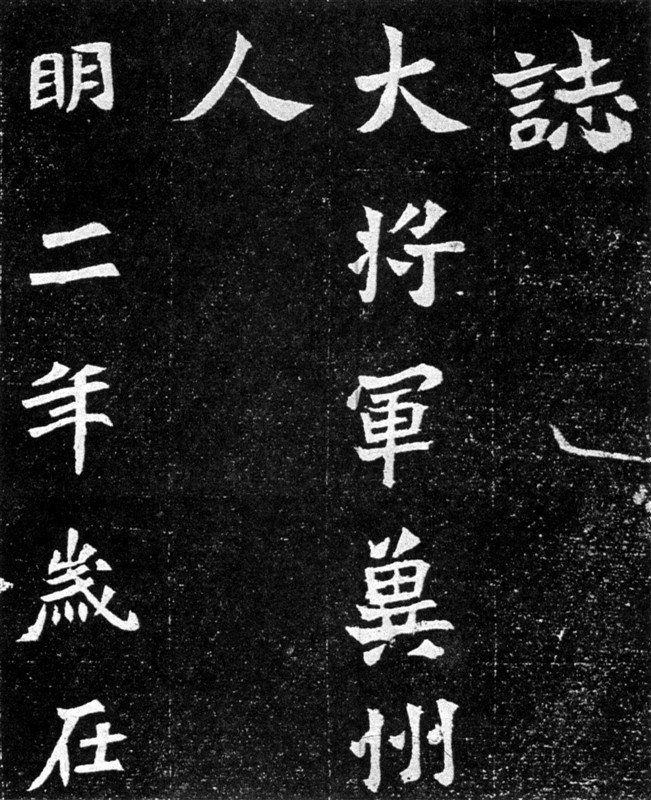 誌
大将軍冀州
人
明二年歲在